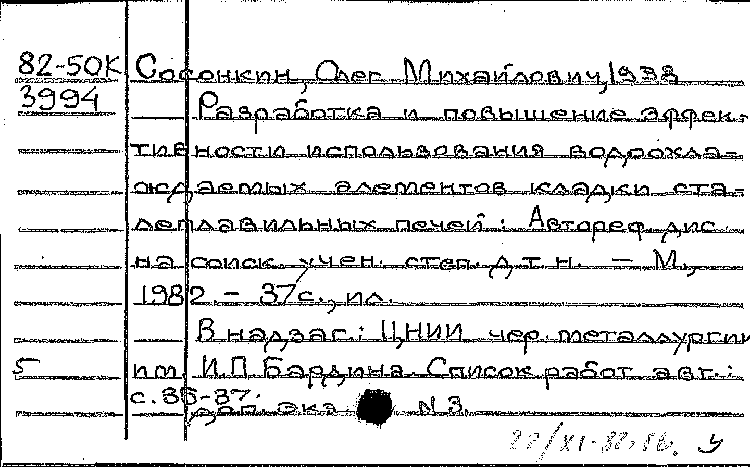 82-50К Сосонкин, Олег Михайлович, 1938
3994 Разработка и повышение эффек-
тивности использования водоохла-
ждаемых элементов кладки ста-
леплавильных печей : Автореф дис
на соиск. учен. степ. д.т.н. — М.,
1982. – 37с., ил.
В надзаг.: ЦНИИ чер. металлургии
5 им. И.П. Бардина. Список работ авт.:
с. 35-37.
Доп. экз. N 3.